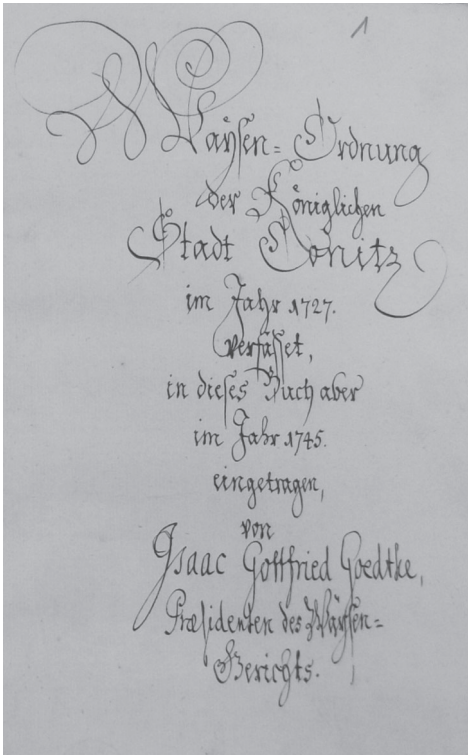 1
Waÿsen= Ordnung
der Königlichen
Stadt Conitz
im Jahr 1727.
verfasset,
in dieses Buch aber
im Jahr 1745.
eingetragen,
von
Isaac Gottfried Goedtke,
Præsidenten des Waÿsen=
Gerichts.